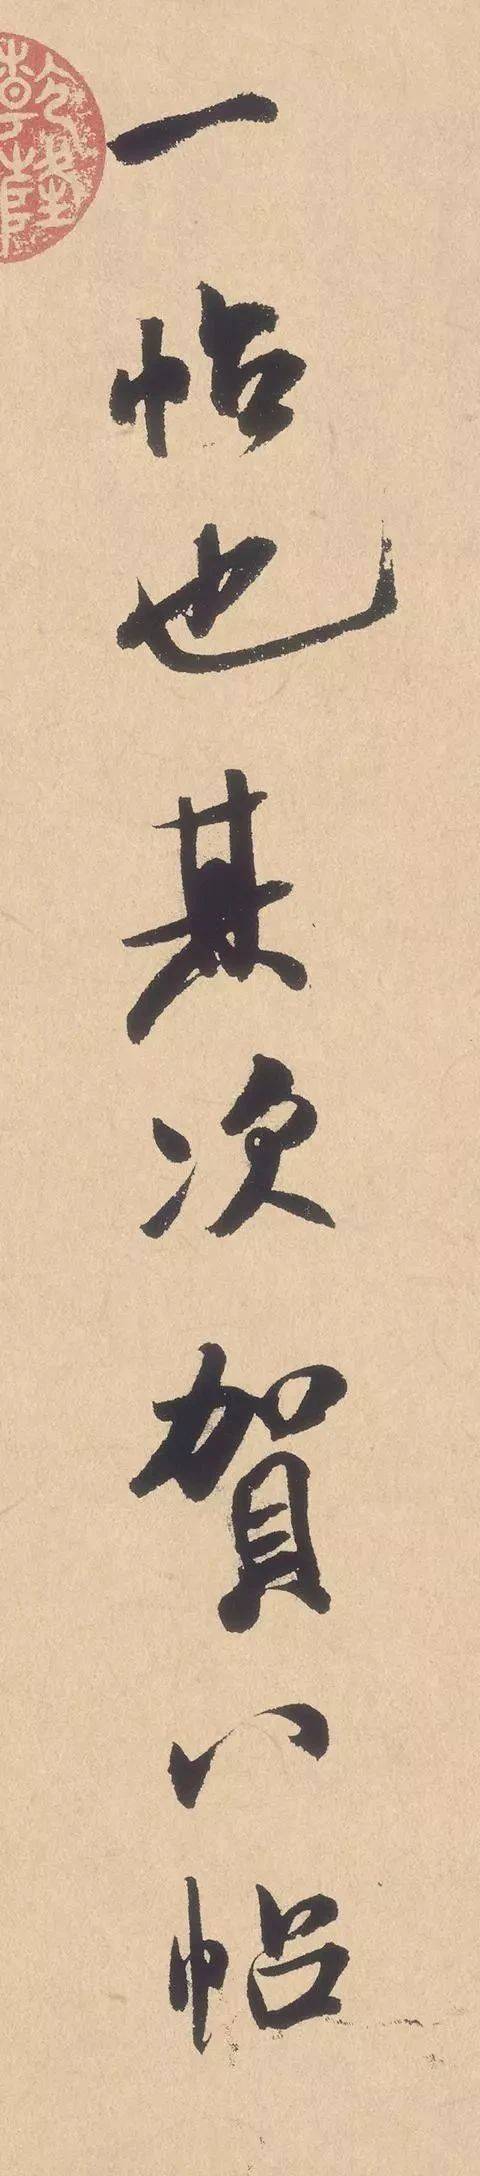 一帖也其次賀八帖